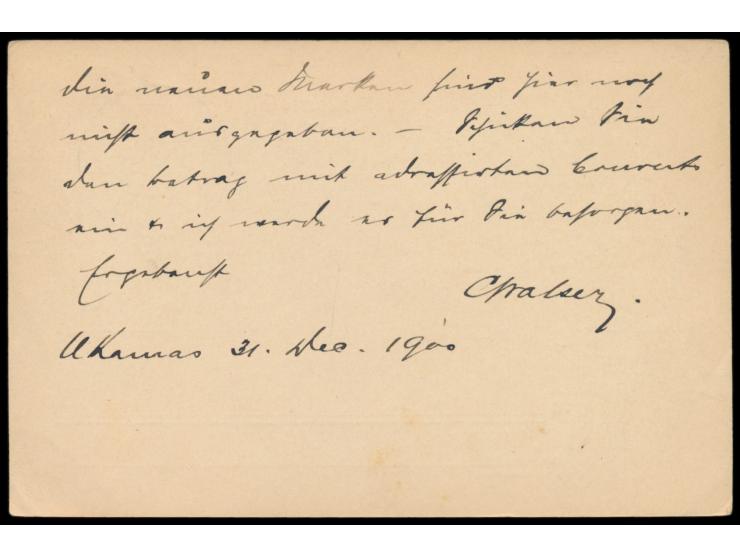 Die neuen Marken sind hier noch
nicht ausgegeben. — Schicken Sie
den Betrag mit adressirten Couverts
ein & ich werde es für Sie besorgen.
Ergebenst
CWalser.
Ukamas 31. Dec. 1900